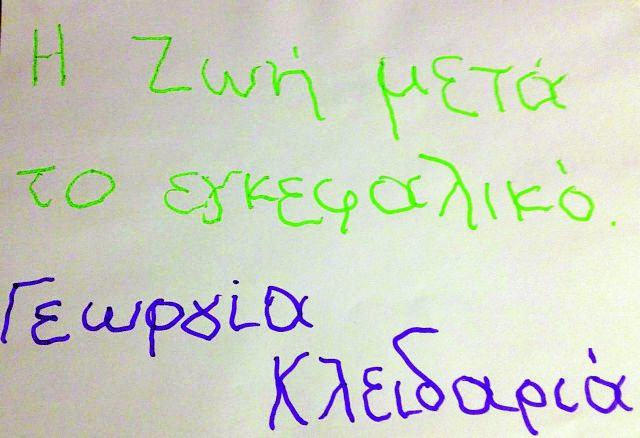 Η Ζωή μετά
το εγκεφαλικό.
Γεωργία
Κλειδαριά